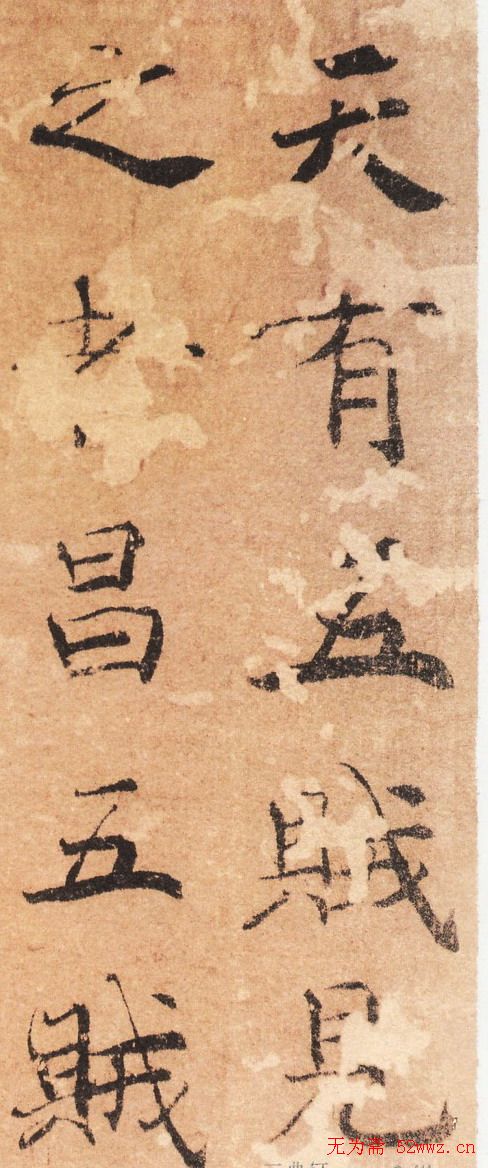 天有五賊見
之者昌五賊
无为斋 52wwz.cn